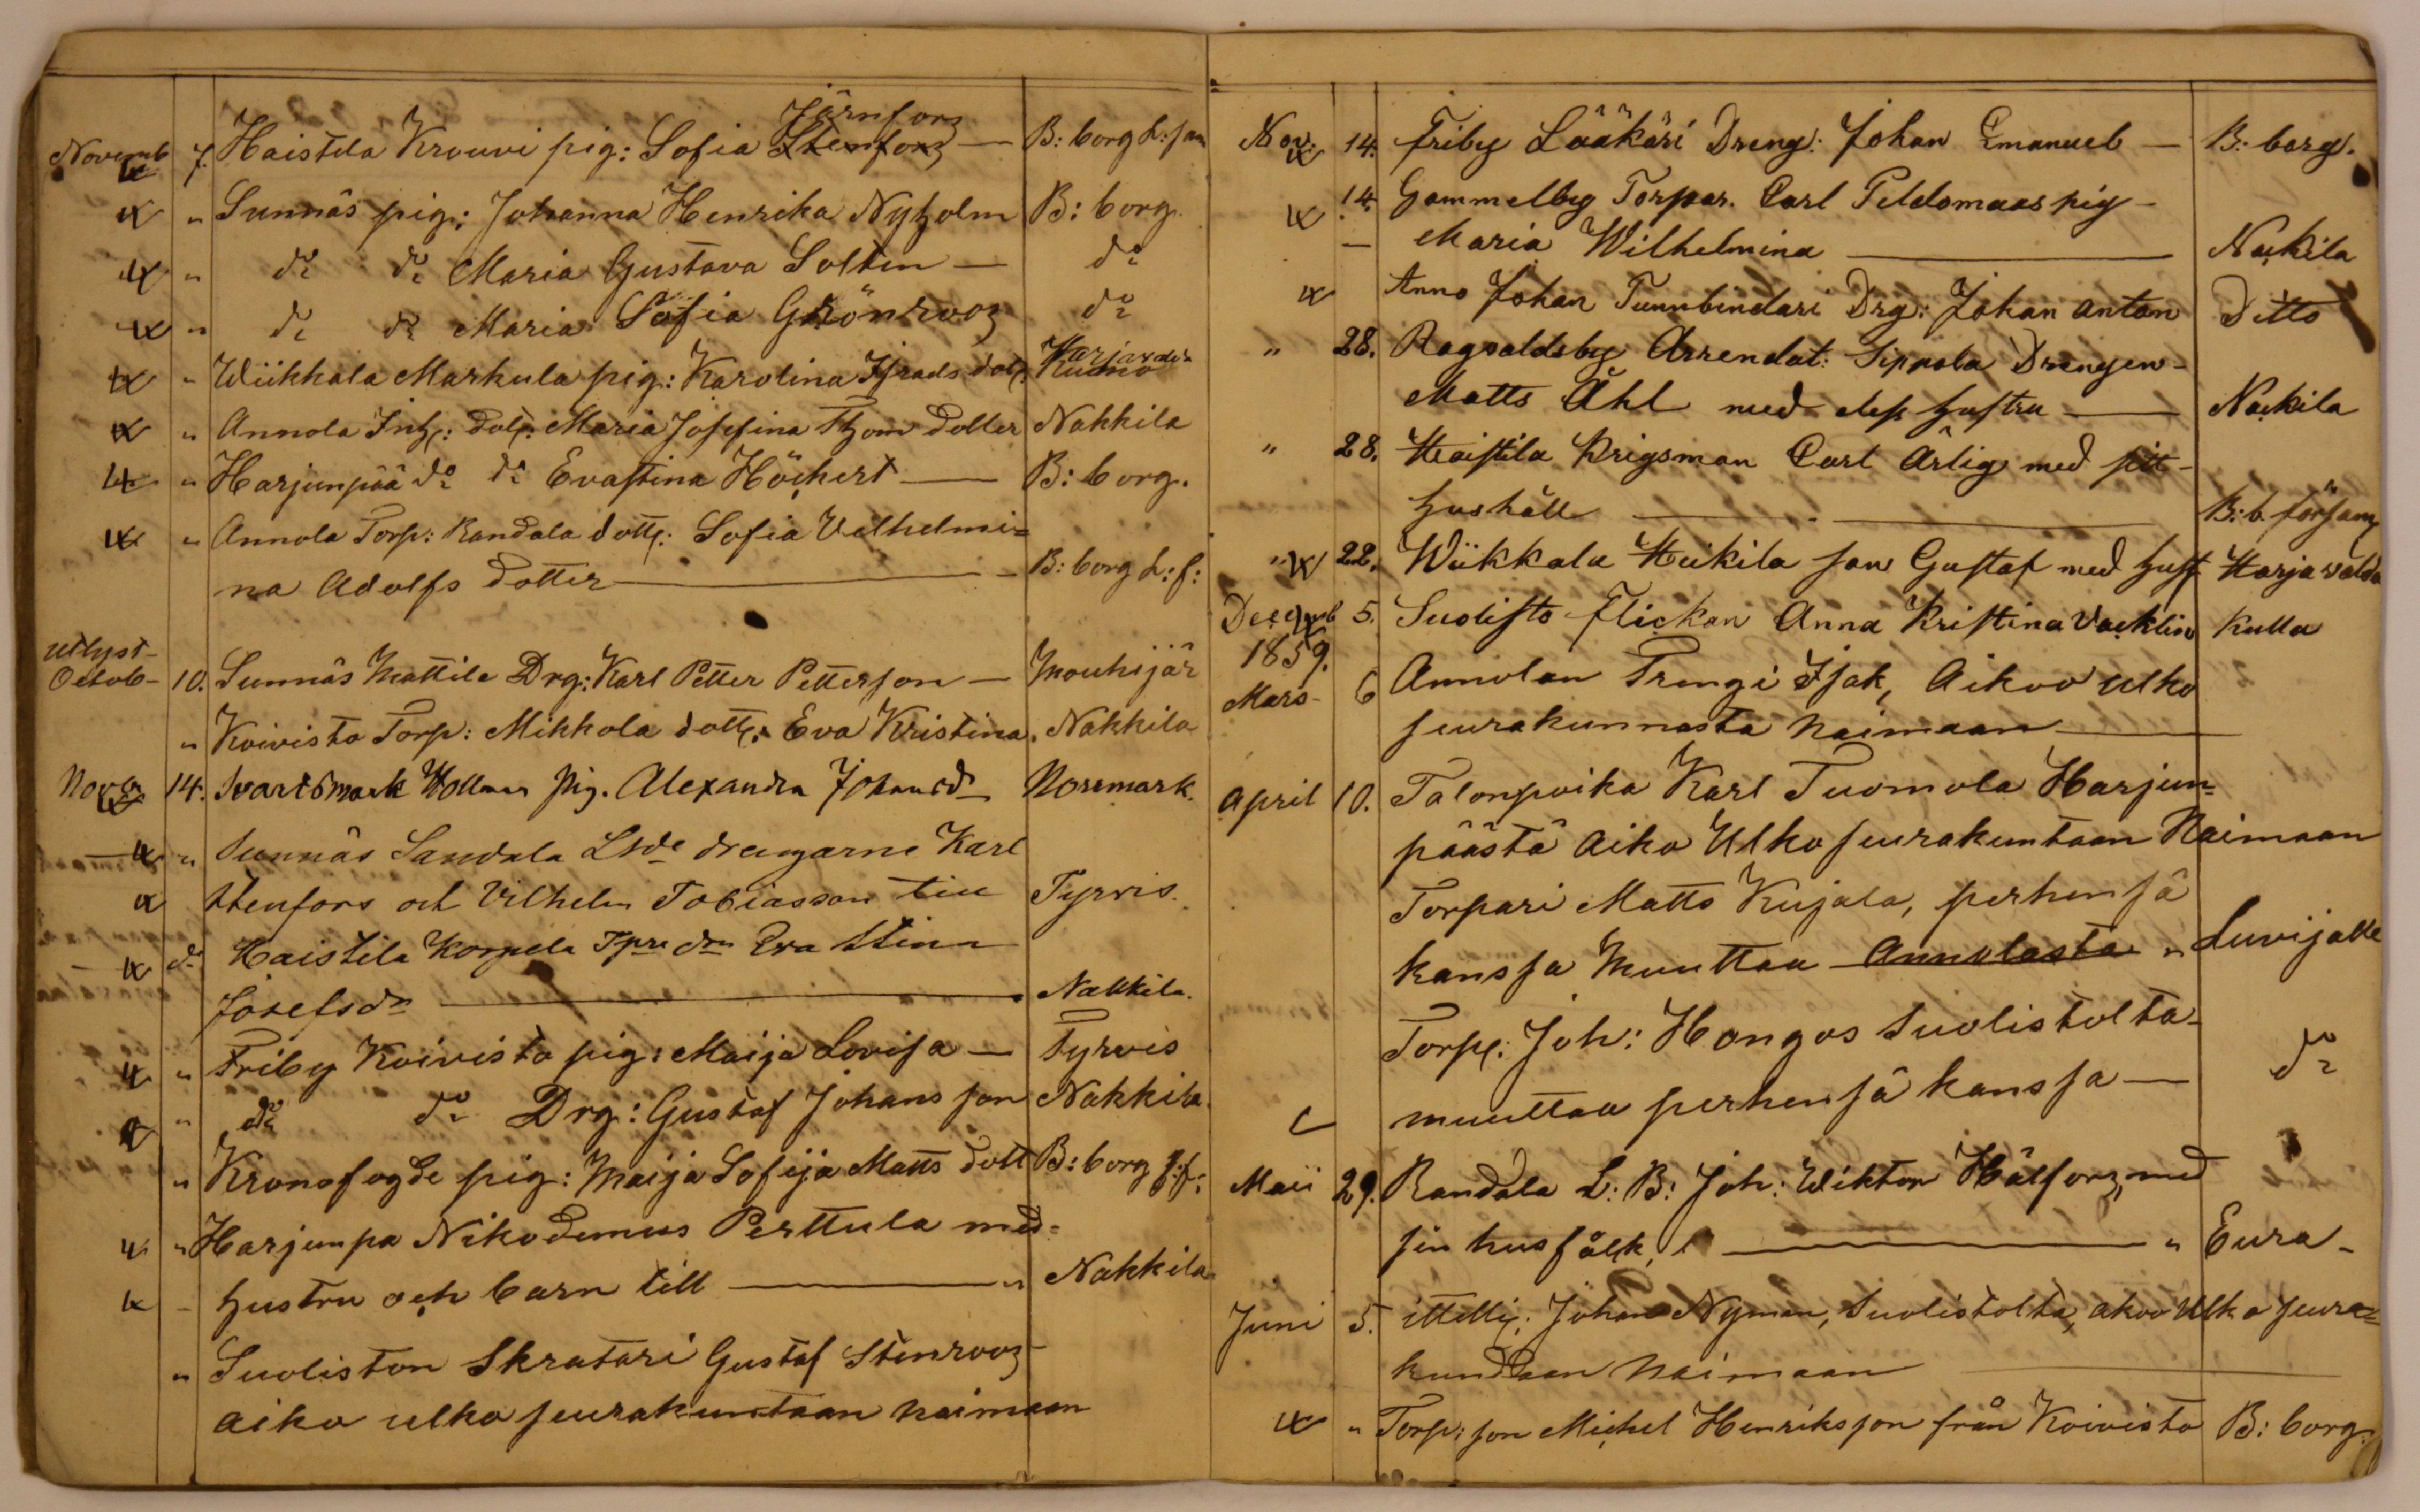 Järnforz
Novemb 7. Haistila Krouvi pig: Sofia Stenforz — B: borg L: fam
" Sunnäs pig: Johanna Henrika Nyholm B: borg.
" do do Maria Gustava Solten — do
" do do Maria Sofia Grönrooz do
Harjavalda
" Wiikkala Markula pig: Karolina Israels dotr. Kumo
" Annola Inh: dotr: Maria Josefina Thom dotter Nakkila
" Harjunpää do do Evastina Höckert — B: borg.
" Annola Torp: Randala dottr: Sofia Velhelmi=
na Adolfs dotter — B: borg L: f:
Utlyst-
Octob- 10. Sunnäs Mattila Drg: Karl Petter Petterson — Mouhijär
" Koivisto Torp: Mikkola dottr: Eva Kristina. Nakkila
Nov. 14. Svartsmark pig. Alexandra Johansd. Norrmark.
" Sunnäs Sandala Lsde drengarne Karl
Stenfors och Vilhelm Tobiasson till Tyrvis.
do Haistila Korpela Tprs dr Eva Stina
Josefsdr — Nakkila.
" Friby Koivisto pig: Maija Lovisa — Tyrvis
" do do Drg: Gustaf Johans son Nakkila.
" Kronofogde pig: Maija Sofija Matts dott B: borg L: f:
" Harjunpa Nikodemus Perttula med=
- hustru och barn till — " Nakkila
" Suoliston Skratari Gustaf Stenrooz
aiko ulko seurakuntaan naimaan
Nov. 14. Friby Lääkäri Dreng: Johan Emanuel — B: borg.
14. Gammelby Torpar. Carl Peldomaas pig-
— Maria Wilhelmina — Nackila
Anno Johan Tunnbindari Drg: Johan Anton Ditto
" 28. Ragvaldsby Arrendat: Sippola Drengen-
Matts Åhl med dess hustru — Nackila
" 28. Haistila Krigsman Carl Ärlig med sitt-
hushåll — B: b. försam
" 22. Wiikkala Heikila son Gustaf med hust Harjavalda
Decemb 5. Suolisto Flickan Anna Kristina Vacklin Kulla
1859.
Mars- 6 Annolan Trengi Isak, Aikoo ulko
seurakunnasta naimaan —
April 10. Talonpoika Karl Tuomola Harjun=
päästä aiko Ulko seurakuntaan Naimaan
Torpari Matts Kujala, perhensä
kanssa Muuttaa Annolasta " Luvijalle
Torpr: Joh: Hongos Suolistolta-
muuttaa perhensä kanssa — do
Maii 29. Randala L: B: Joh: Wiktor Hälforz, med
sin husfålk, — " Eura-
Juni 5. ittellr: Johan Nyman, Suolistolta, akoo Ulko seura=
kundaan Naimaan —
" Torp: son Michel Henriksson från Koivisto B: borg.